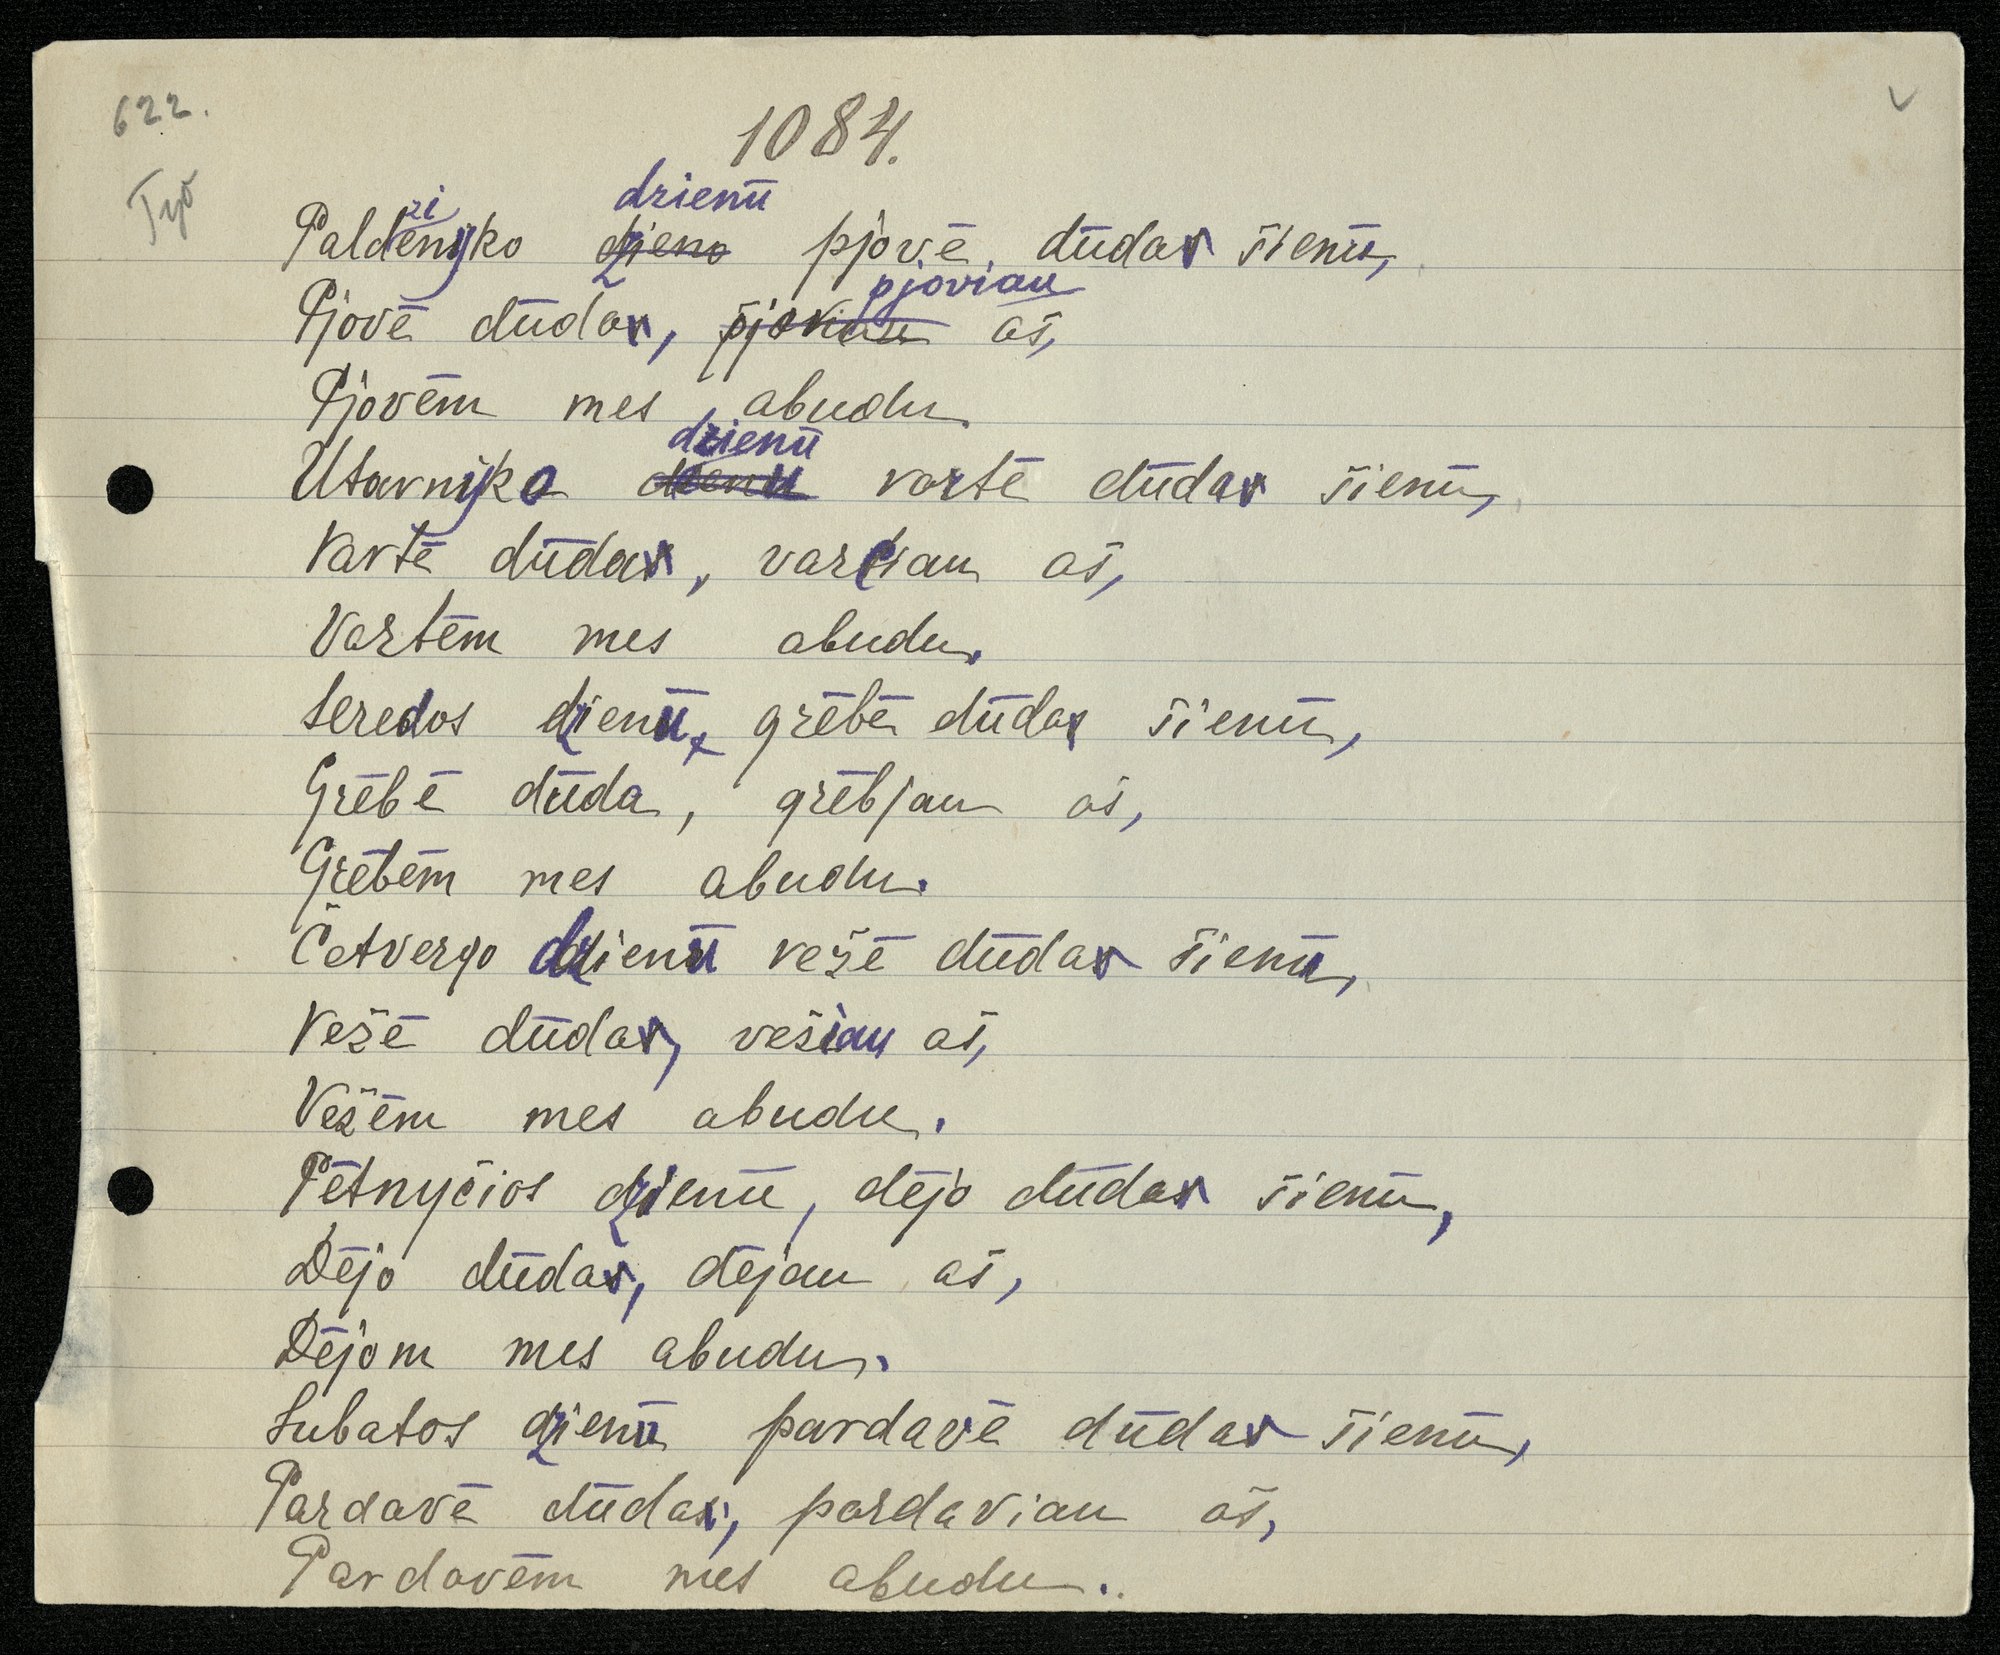 622.
1084.
Tyō
zi dzienū
Paldenyko dzieno pjovē dūdar šienū,
pjoviau
Pjovē dūdar, pjoviau aš,
Pjovēm mes abudu.
dzienū
Utarnyko dienu vartē dūdar šienū,
Vartē dūdar, varčiau aš,
Vartēm mes abudu.
Seredos dzienū, grēbē dūdar šienū,
Grēbē dūda, grēbjau aš,
Grēbēm mes abudu.
Četvergo dzienū vežē dūdar šienū,
Vežē dūdar, vešiau aš,
Vežēm mes abudu.
Pētnyčios dzienū, dējo dūdar šienū,
Dējo dūdar, dējau aš,
Dējom mes abudu.
Subatos dzienū pardavē dūdar šienū,
Pardavē dūdar, pardaviau aš,
Pardavēm mes abudu..